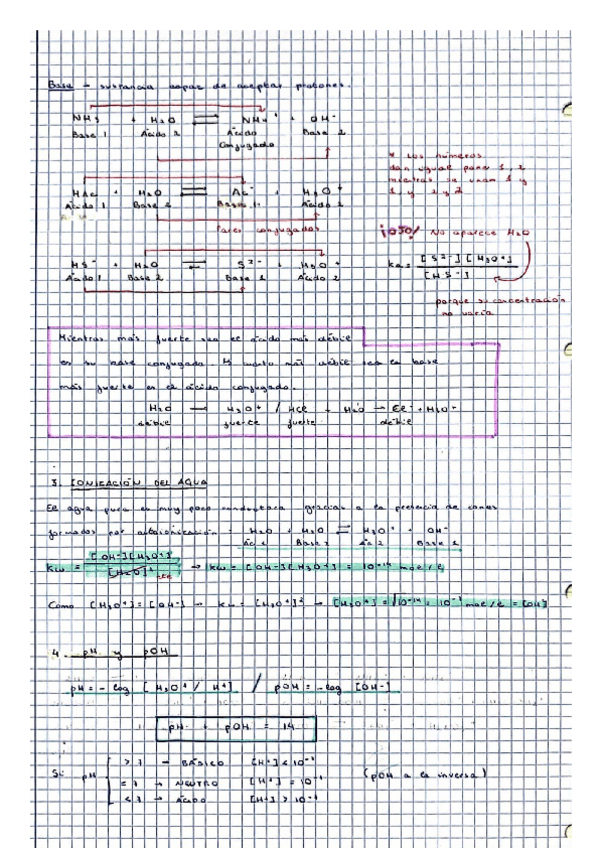 Base → sustancia capaz de aceptar protones.
NH3 + H2O ⇌ NH4+ + OH-
Base 1 Ácido 2 Ácido Base 2
Conjugado
* Los números
dan igual poner 1, 2
mientras se unan 1 y
1, y 2 y 2
HAc + H2O ⇌ Ac- + H3O+
Ácido 1 Base 2 Base 1 Ácido 2
Pares conjugados
¡OJO! No aparece H2O
HS- + H2O ⇌ S2- + H3O+
Ácido 1 Base 2 Base 1 Ácido 2
Ka = [S2-][H3O+] / [HS-]
porque su concentración
no varía
Mientras más fuerte sea el ácido más débil
es su base conjugada. Y cuanto más débil sea la base
más fuerte es el ácido conjugado.
H2O → H3O+ / HCl + H2O → Cl- + H3O+
débil fuerte fuerte débil
3. IONIZACIÓN DEL AGUA
El agua pura es muy poco conductora gracias a la presencia de iones
formados por autoionización: H2O + H2O ⇌ H3O+ + OH-
Ác 1 Base 2 Ác 2 Base 1
Kw = [OH-][H3O+] / [H2O]2 → Kw = [OH-][H3O+] = 10-14 mol/l
Como [H3O+] = [OH-] → Kw = [H3O+]2 → [H3O+] = √10-14 = 10-7 mol/l = [OH]
4. pH y pOH
pH = - log [H3O+ / H+] / pOH = - log [OH-]
pH + pOH = 14
> 7 → BÁSICO [H+] < 10-7
Si pH = 7 → NEUTRO [H+] = 10-7 (pOH a la inversa)
< 7 → ÁCIDO [H+] > 10-7